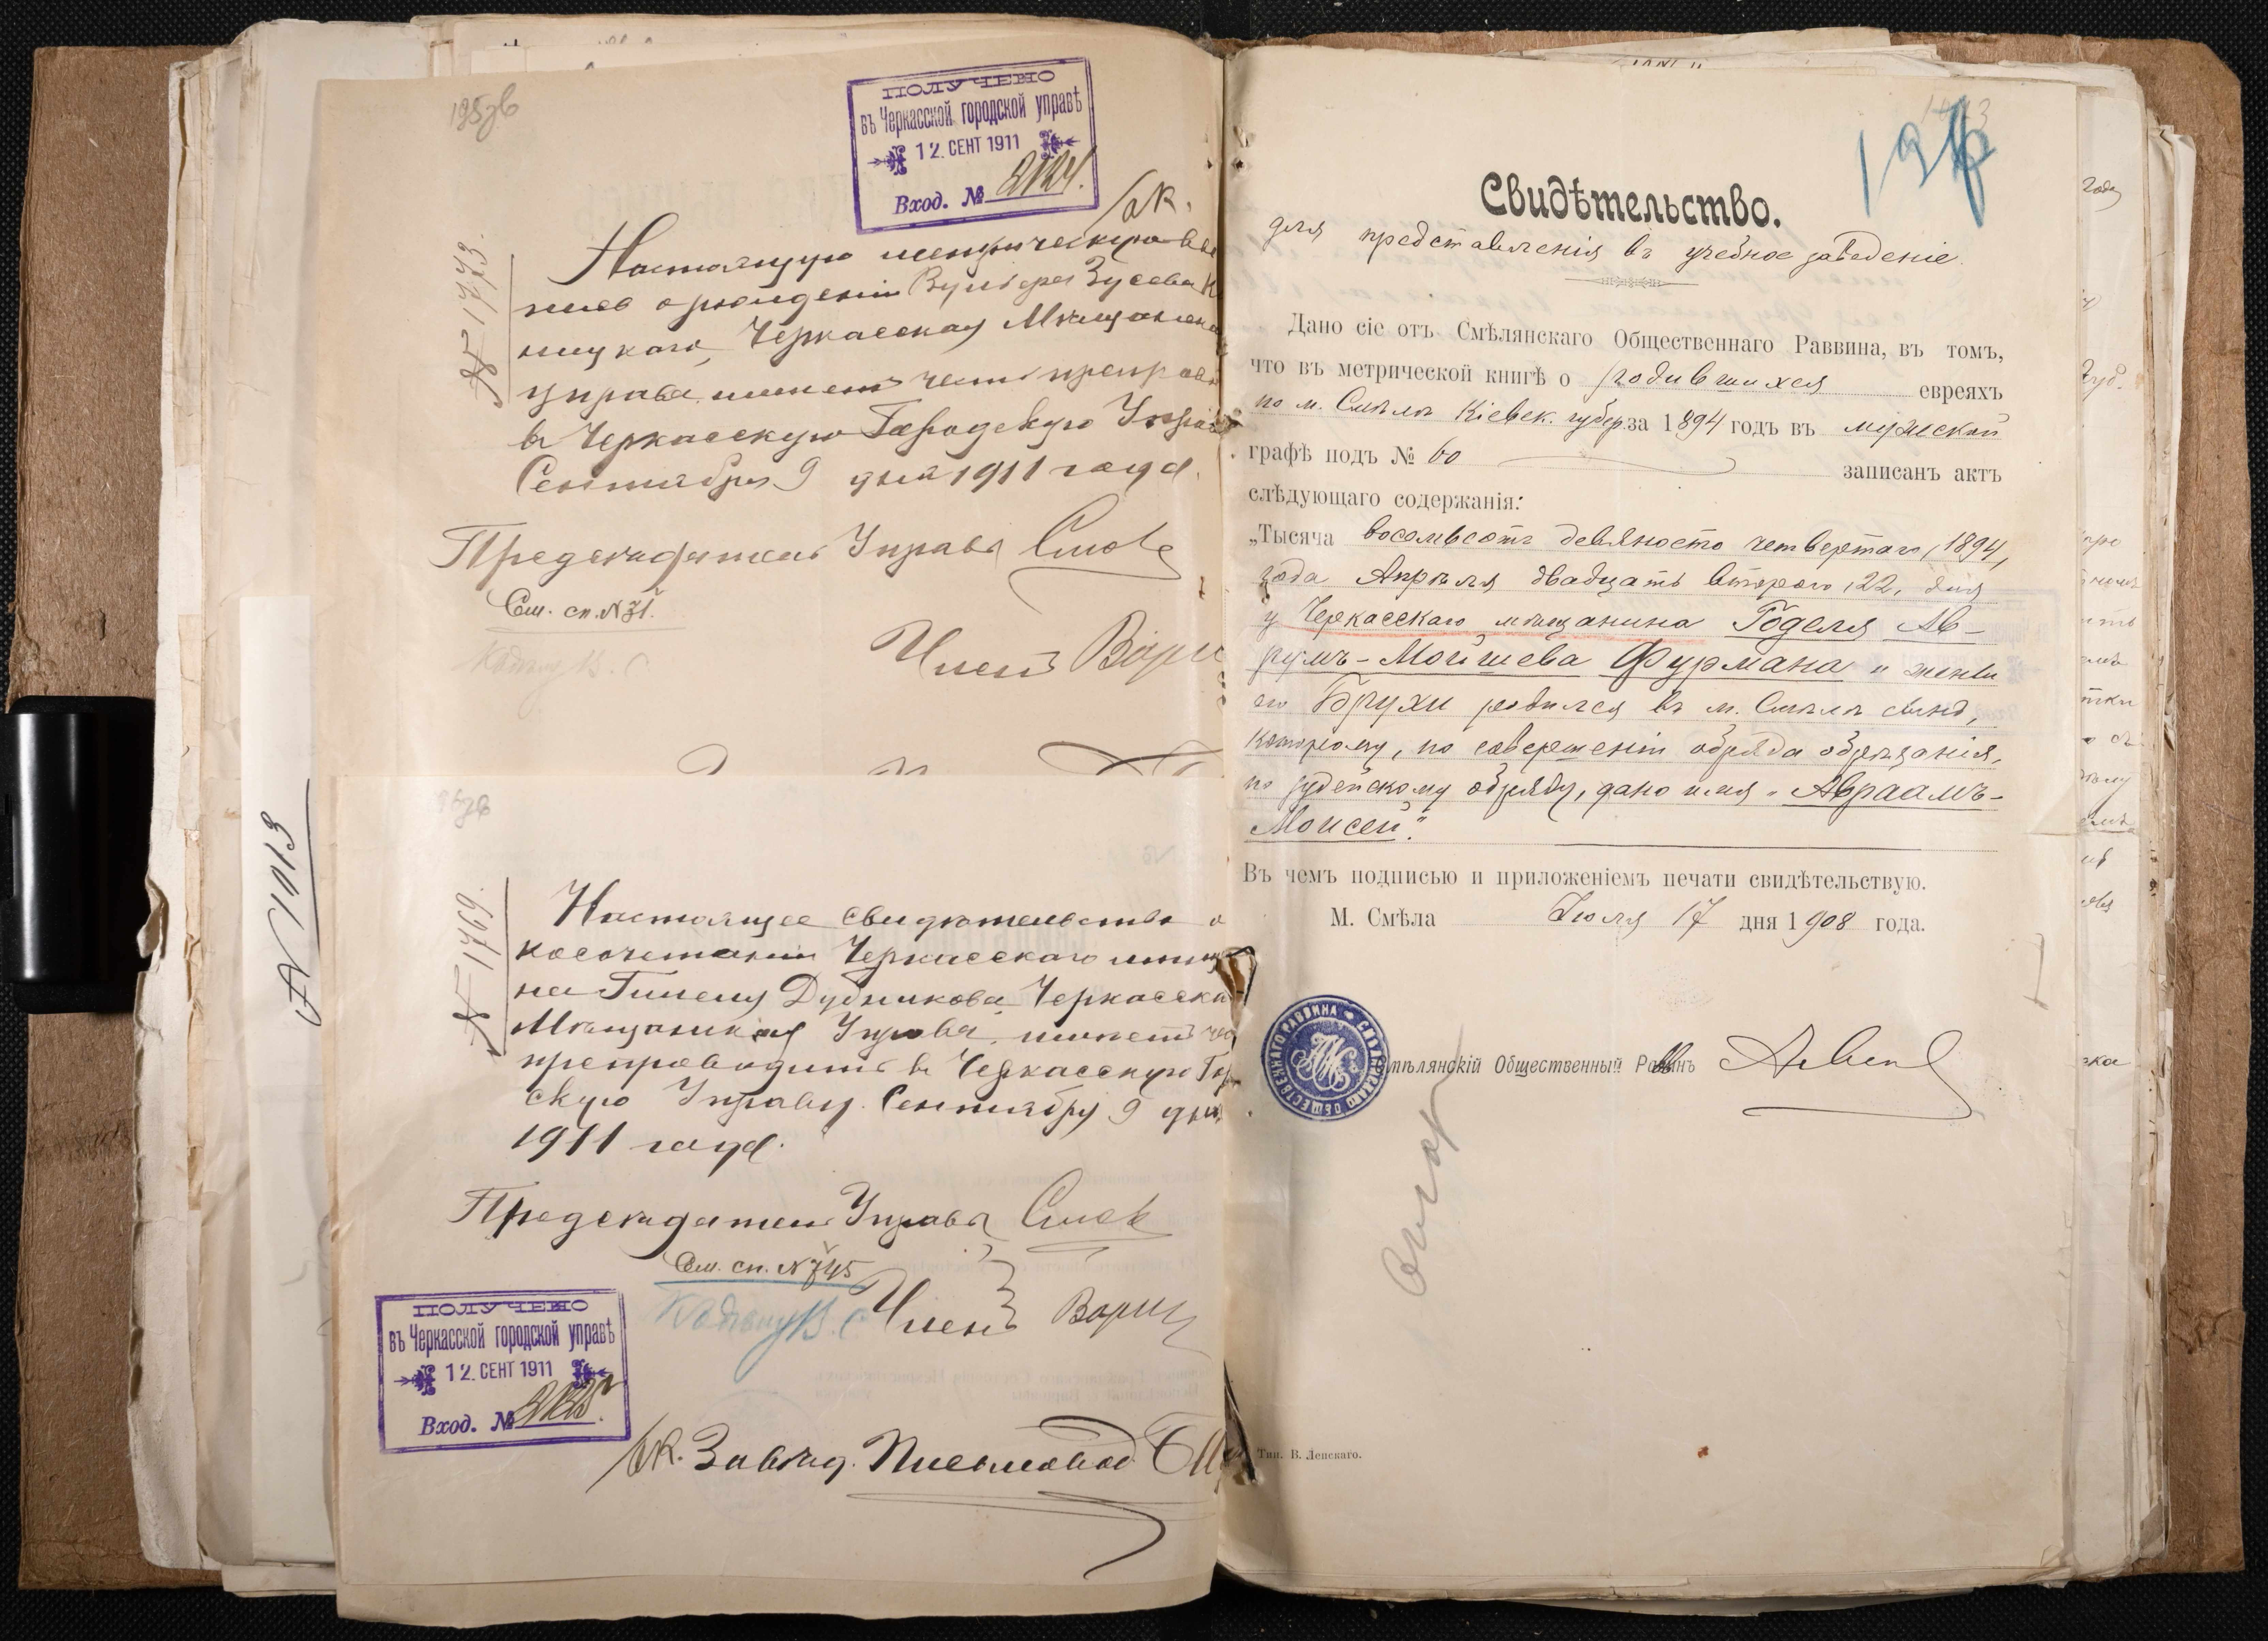 195зв
ПОЛУЧЕНО
въ Черкасской городской управѣ
12. СЕНТ 1911
Вход. №
№ 1773.
Настоящую метрическую
о рожденіи Зусева
Черкасская Мѣщанская
управа имѣетъ честь препров
въ Черкасскую Городскую Управ
Сентября 9 дня 1911 года.
Предсѣдатель Управы
См. сп. №
Членъ
№ 1013
№ 1769.
Настоящее свидѣтельство о
косочетаніи Черкасскаго мѣщ
на Дубникова Черкасска
Мѣщанская Управа имѣетъ чес
препроводить въ Черкасскую Гор
скую Управу. Сентября 9 дня
1911 года.
Предсѣдатель Управы
См. сп. № 745
Членъ
ПОЛУЧЕНО
въ Черкасской городской управѣ
12. СЕНТ 1911
Вход. № 2125
Завѣд. Письмовод
Свидѣтельство.
для представленія въ учебное заведеніе.
Дано сіе отъ Смѣлянскаго Общественнаго Раввина, въ томъ,
что въ метрической книгѣ о родившихся евреяхъ
по м. Смѣлѣ Кіевск. губер. за 1894 годъ въ мужской
графѣ подъ № 60 записанъ актъ
слѣдующаго содержанія:
„Тысяча восемьсотъ девяносто четвертаго, 1894,
года Апрѣля двадцать второго, 22, дня
у Черкасскаго мѣщанина Годеля Ав-
румъ-Мойшева Фурмана и жены
его Брухи родился въ м. Смѣлѣ сынъ,
которому, по совершеніи обряда обрѣзанія,
по іудейскому обряду, дано имя „Авраамъ-
Моисей".
Въ чемъ подписью и приложеніемъ печати свидѣтельствую.
М. Смѣла Іюля 17 дня 1908 года.
Смѣлянскій Общественный Раввинъ
Тип. В. Ленскаго.